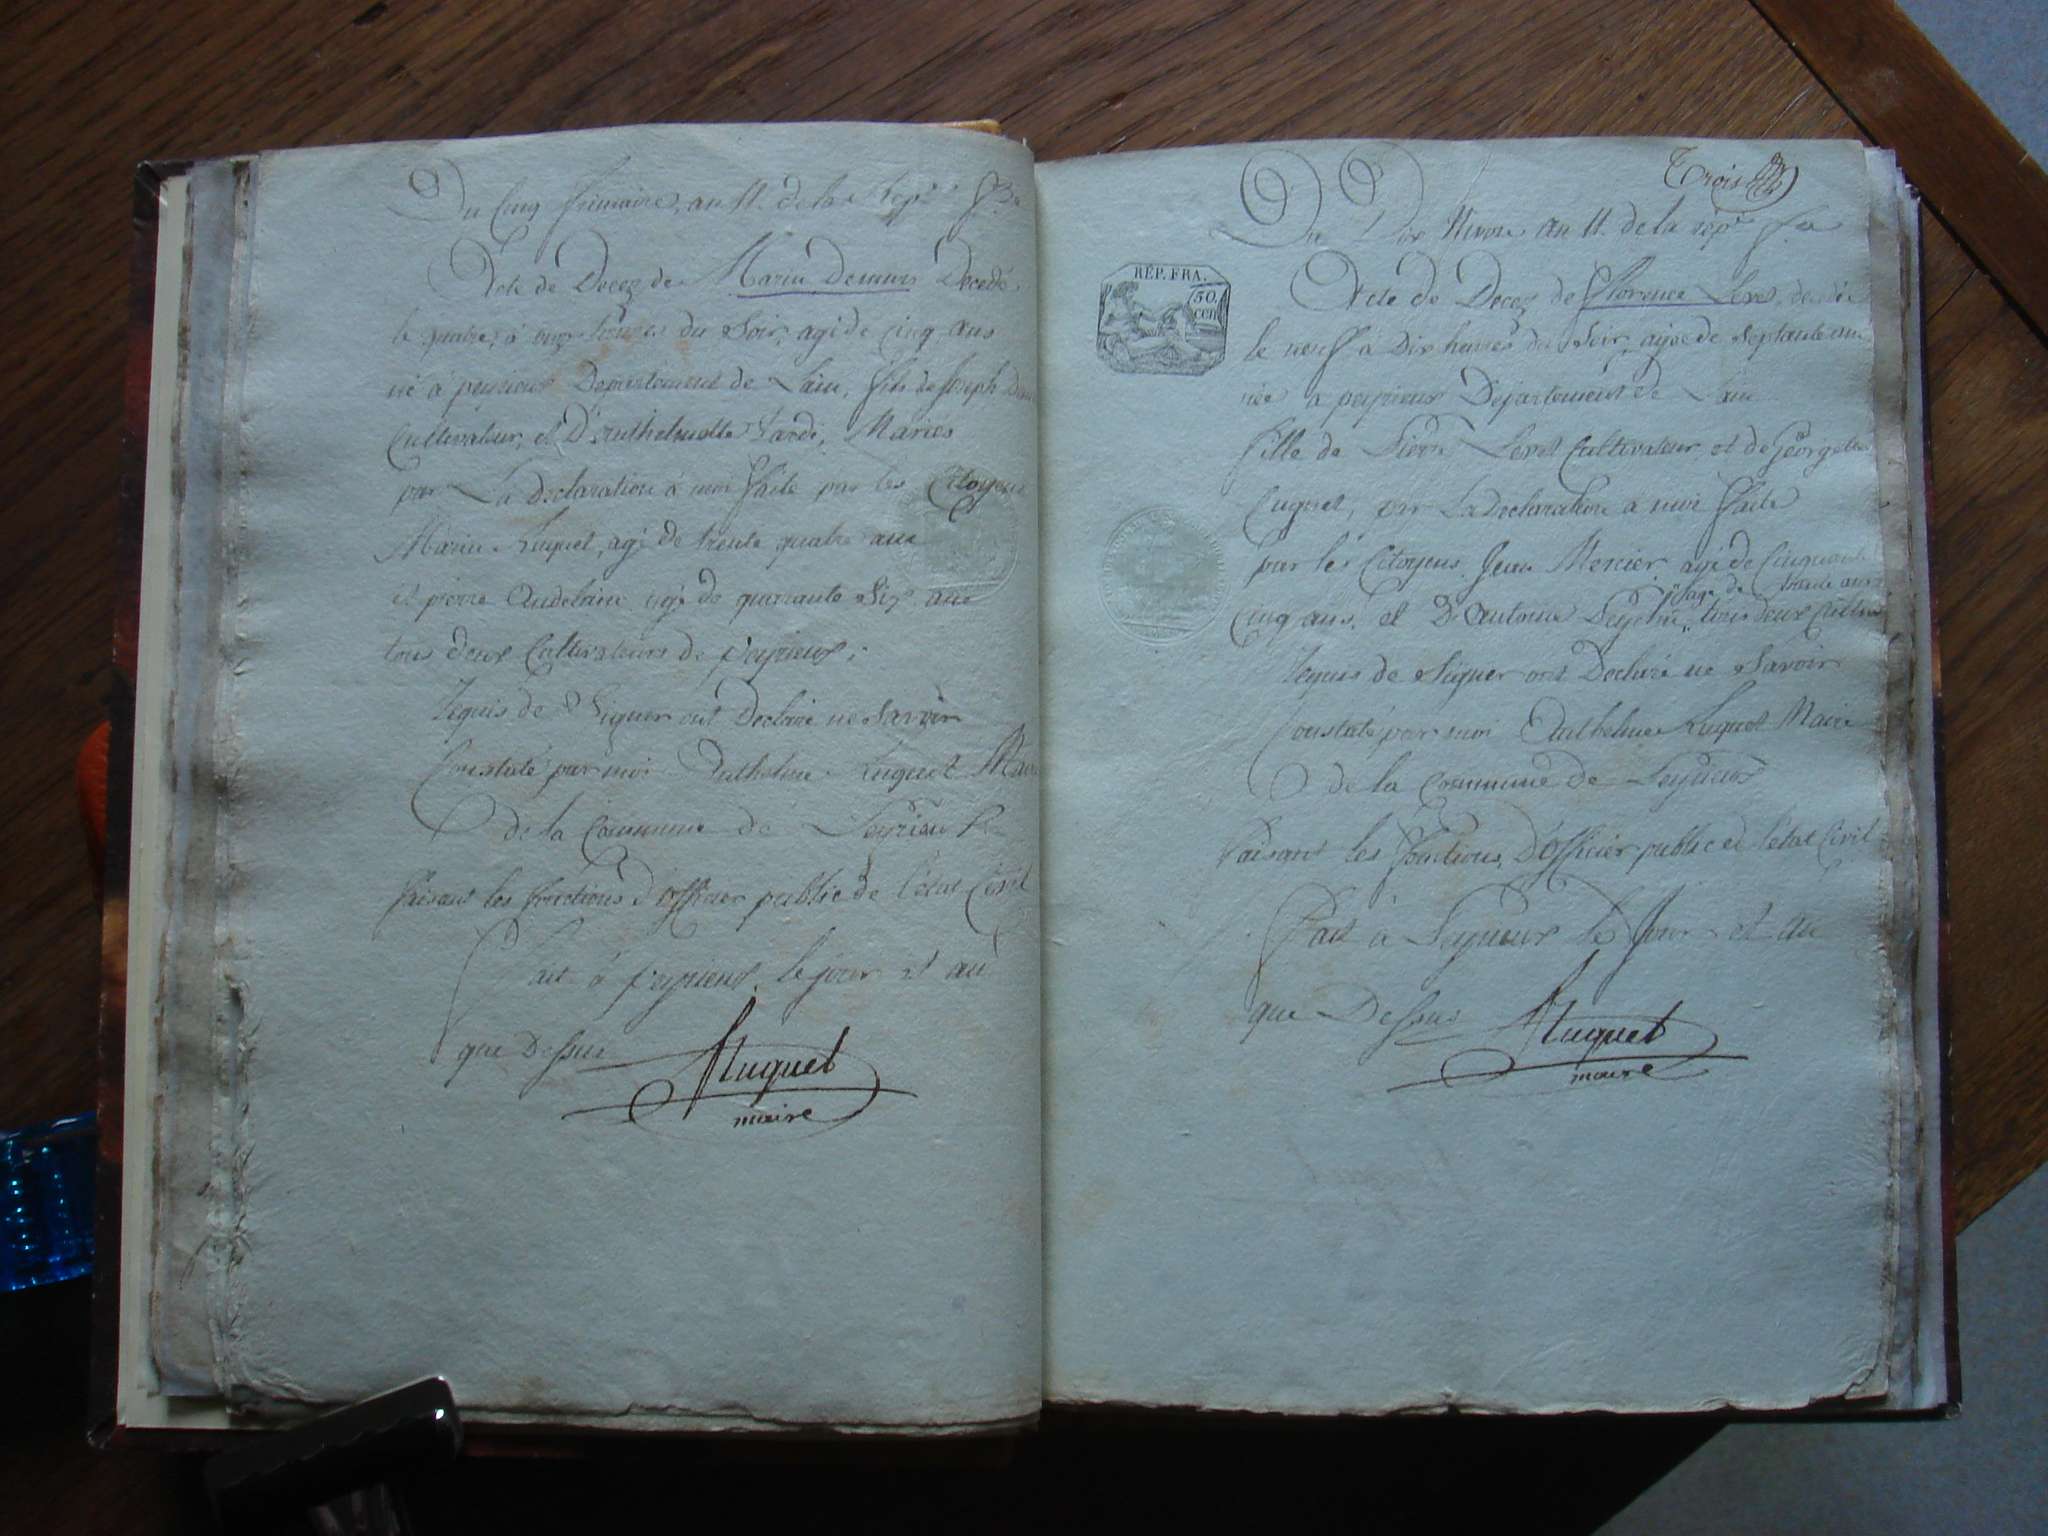 Du Cinq frimaire, an 11. de la Rép.e f.se
Acte de Decez de Marin Demurs Decedé
le quatre, à onze heures du Soir, agé de Cinq ans
né à peyrieux Departement de Lain, fils de Joseph
Cultivateur, et D'anthelmette Tardi, Mariés
par La declaration à moi faite par les Citoyens
Marin Luquet, agé de trente quatre ans
et pierre Andelain agé de quarante Six ans
tous deux Cultivateurs de peyrieux;
Requis de Signer ont Declaré ne Savoir
Constaté par moi Anthelme Luquet Maire
de la Commune de Peyrieu
faisant les fonctions d'officier public de l'état Civil
fait à peyrieux, le jour et an
que Dessus
Aluquet
maire
Trois
Du Dix Nivose an 11. de la rép.e f.se
RÉP. FRA.
50.
cen
Acte de Decez de Florence Levet, decedée
le neuf à Dix heures du Soir, agée de Septante un
née a peyrieux Département de Lain
fille de Pierre Levet Cultivateur, et de Georgette
Cuquet, par La Declaration a moi faite
par les Citoyens Jean Mercier agé de Cinquante
agé de trente ans
Cinq ans, et D'Antoine tous deux Cultiv
Requis de Signer ont Declaré ne Savoir
Constaté par moi Anthelme Luquet Maire
de la Commune de Peyrieux
Faisant les fonctions, D'officier public de l'état Civil
Fait à Peyrieux le Jour et an
que Dessus
Aluquet
maire